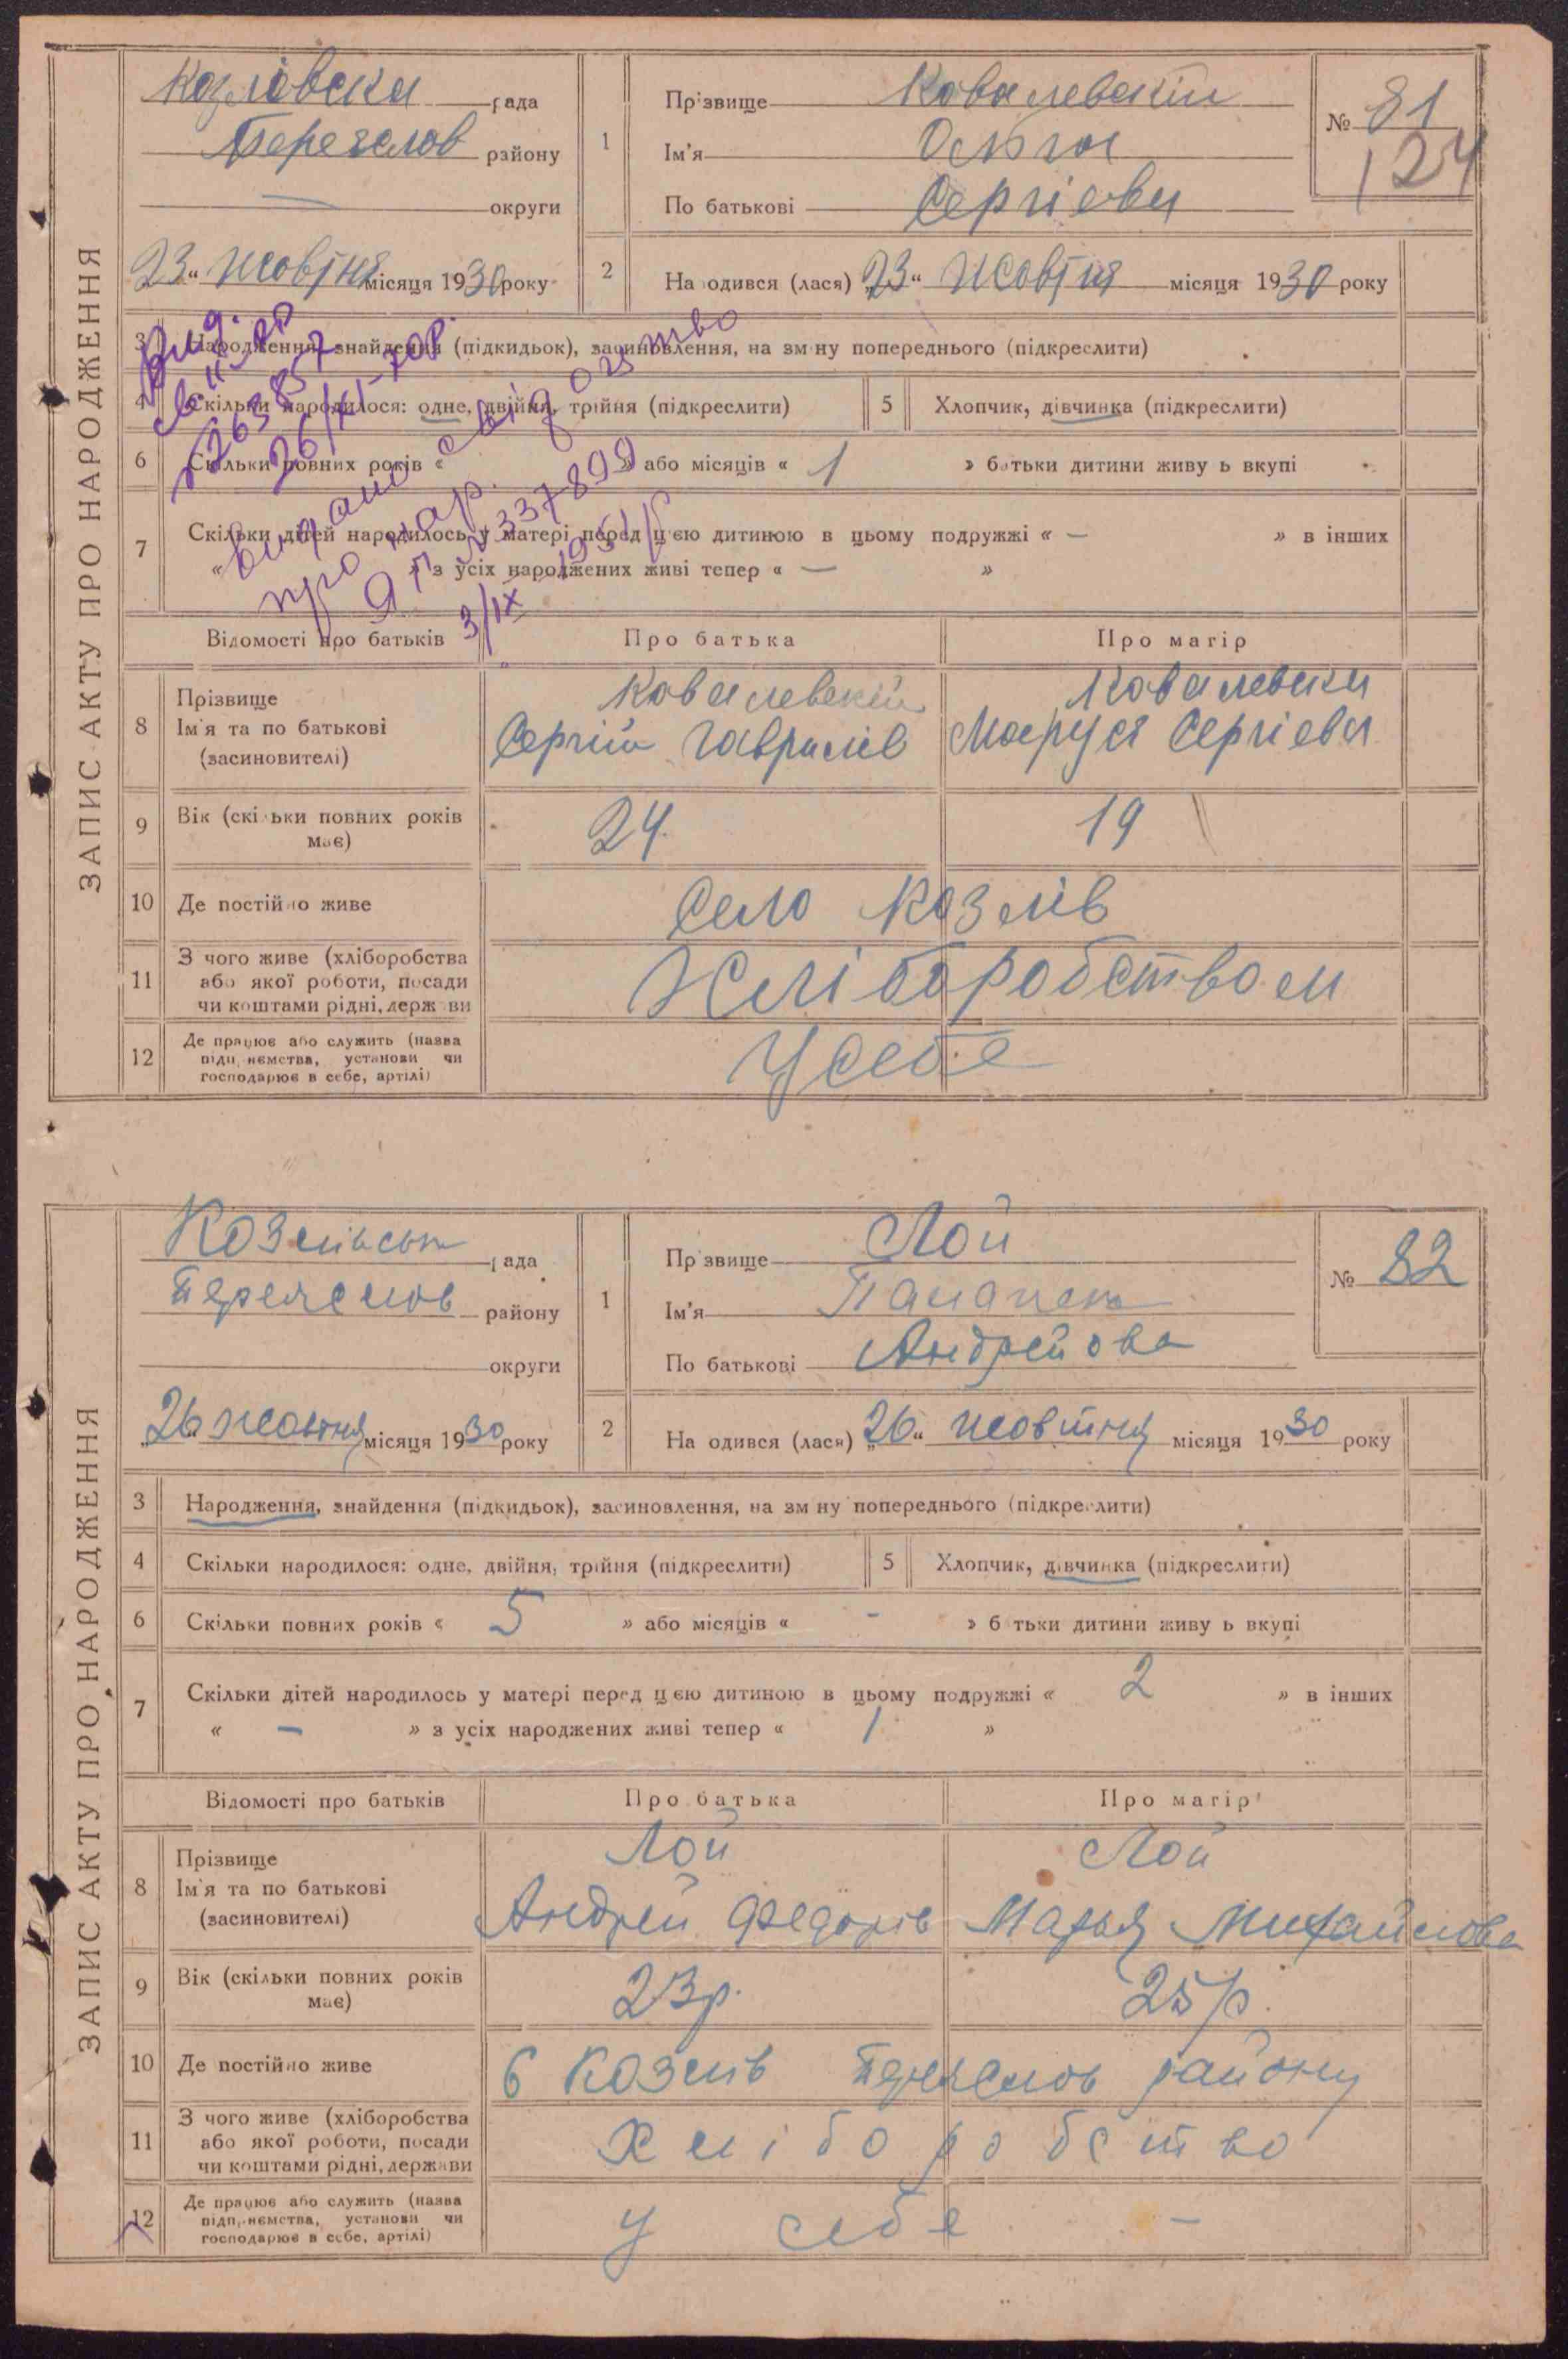 ЗАПИС АКТУ ПРО НАРОДЖЕННЯ
Козлівска рада
району
округи
23 жовтня місяця 1930 року
1 Прізвище Ковалевскій
Ім'я Ольга
По батькові Сергієва
№ 81
124
2 На одився (лася) „23“ жовтня місяця 1930 року
3 Народження, знайдення (підкидьок), засиновлення, на зм ну попереднього (підкреслити)
4 Скільки народилося: одне, двійня, трійня (підкреслити) 5 Хлопчик, дівчинка (підкреслити)
6 Скільки повних років « » або місяців « 1 » батьки дитини живу ь вкупі
7 Скільки дітей народилось у матері перед цією дитиною в цьому подружжі « — » в інших
« » з усіх народжених живі тепер « — »
видано свідоцтво
про нар.
337899
3/IX 1951 р
Відомості про батьків Про батька Про матір
8 Прізвище
Ім'я та по батькові
(засиновителі)
Ковалевскій
Сергій Гаврилів
Ковалевска
Маруся Сергієва
9 Вік (скільки повних років має) 24. 19
10 Де постійно живе Село Козлів
11 З чого живе (хліборобства
або якої роботи, посади
чи коштами рідні, держави
Хліборобством
12 Де працює або служить (назва
підприємства, установи чи
господарює в себе, артілі)
У себе
ЗАПИС АКТУ ПРО НАРОДЖЕННЯ
рада
Переяслов району
округи
„26 жовтня місяця 1930 року
1 Прізвище Лой
Ім'я
По батькові Андрейова
№ 82
2 На одився (лася) „26“ жовтня місяця 1930 року
3 Народження, знайдення (підкидьок), засиновлення, на зм ну попереднього (підкреслити)
4 Скільки народилося: одне, двійня, трійня (підкреслити) 5 Хлопчик, дівчинка (підкреслити)
6 Скільки повних років « 5 » або місяців « - » б тьки дитини живу ь вкупі
7 Скільки дітей народилось у матері перед цією дитиною в цьому подружжі « 2 » в інших
« — » з усіх народжених живі тепер « 1 »
Відомості про батьків Про батька Про матір
8 Прізвище
Ім'я та по батькові
(засиновителі)
Лой
Андрей Федорів
Лой
Марья Михайлова
9 Вік (скільки повних років має) 23р. 25р.
10 Де постійно живе с Козлів Переяслов району
11 З чого живе (хліборобства
або якої роботи, посади
чи коштами рідні, держави
хліборобство
12 Де працює або служить (назва
підприємства, установи чи
господарює в себе, артілі)
у себе -